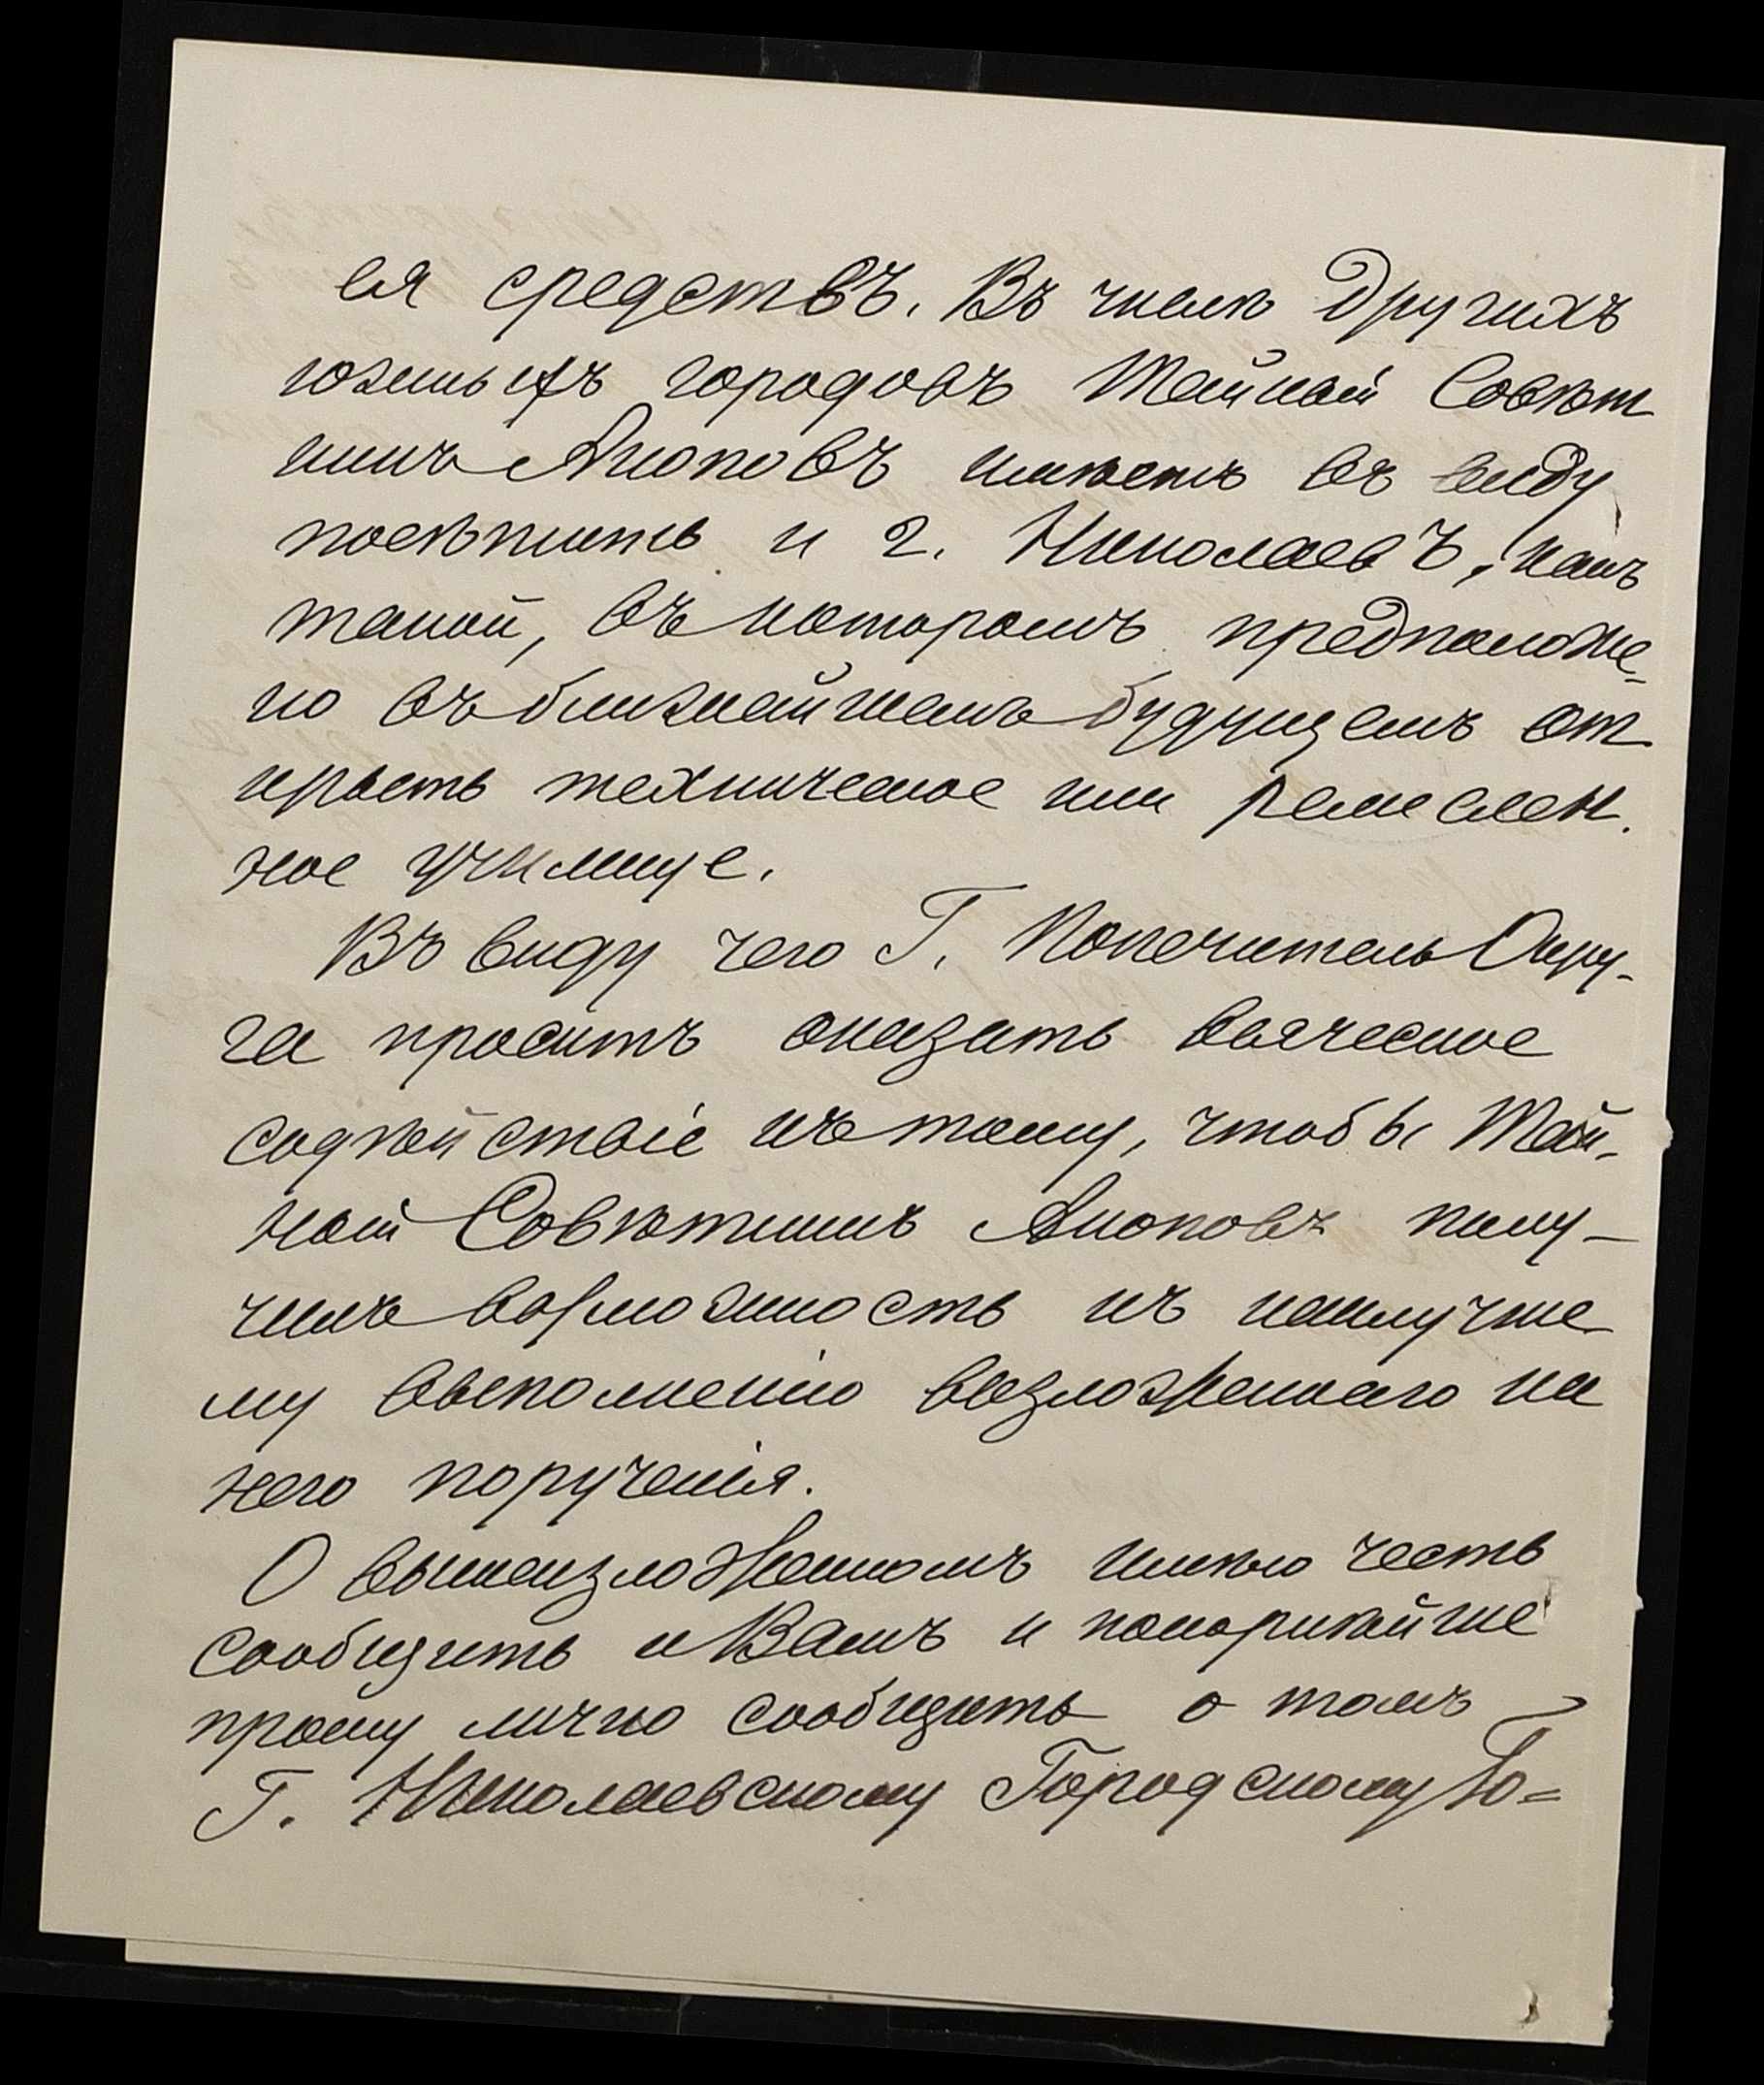 ся средствъ. Въ числѣ другихъ
южныхъ городовъ Тайный Совѣт
никъ Аноповъ имѣетъ въ виду
посѣтить и г. Николаевъ, какъ
такой, въ которомъ предположе-
но въ ближайшемъ будущемъ от
крыть техническое или ремеслен.
ное училище.
Въ виду чего Г. Попечитель Окру-
га проситъ оказать всяческое
содѣйствіе къ тому, чтобы Тай-
ный Совѣтникъ Аноповъ полу-
чилъ возможность къ наилучше
му выполненію возложеннаго на
него порученія.
О вышеизложенномъ имѣю честь
сообщить и Вамъ и покорнѣйше
прошу лично сообщить о томъ
Г. Николаевскому Городскому Го=